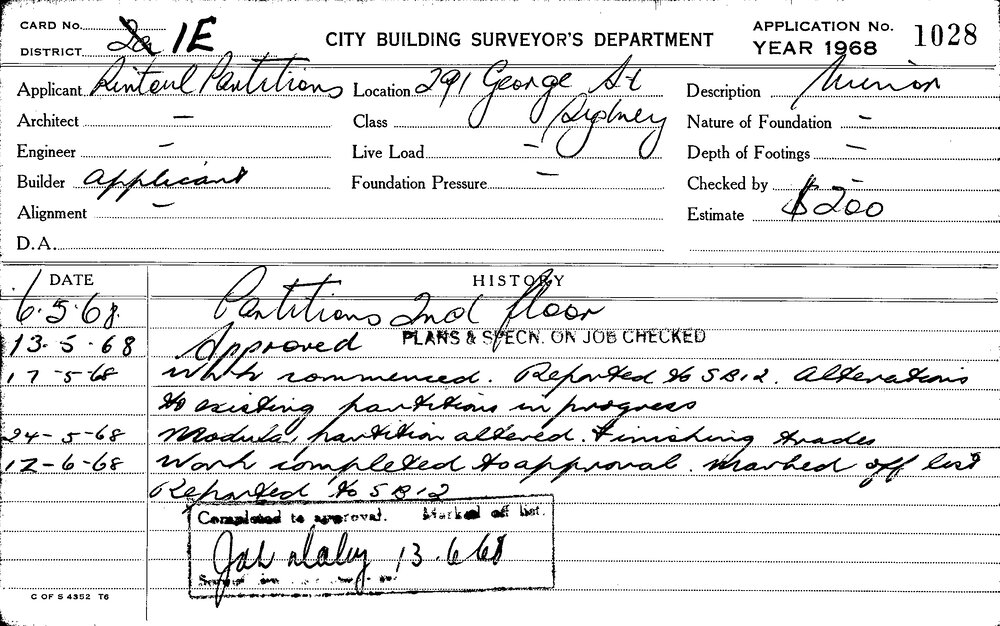 CARD No.
DISTRICT. 2a 1E
CITY BUILDING SURVEYOR'S DEPARTMENT
APPLICATION No.
YEAR 1968
1028
Applicant Rintoul Partitions Location 291 George St Description Minor
Architect — Class Sydney Nature of Foundation —
Engineer — Live Load — Depth of Footings —
Builder Applicant Foundation Pressure — Checked by —
Alignment — Estimate $200
D.A.
DATE HISTORY
6.5.68. Partitions 2nd floor
13.5.68 Approved PLANS & SPECN. ON JOB CHECKED
17-5-68 Work commenced. Reported to SB12. Alterations
to existing partitions in progress
24-5-68 Modular partition altered. Finishing trades
12-6-68 Work completed to approval. Marked off list
Reported to SB12
Completed to approval. Marked off list.
13.6.68
C OF S 4352 T6